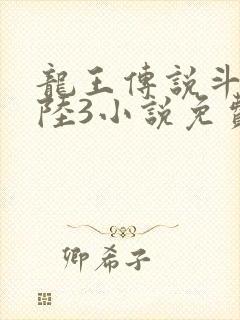 龍王傳說斗
陸3小說免費
卿希子